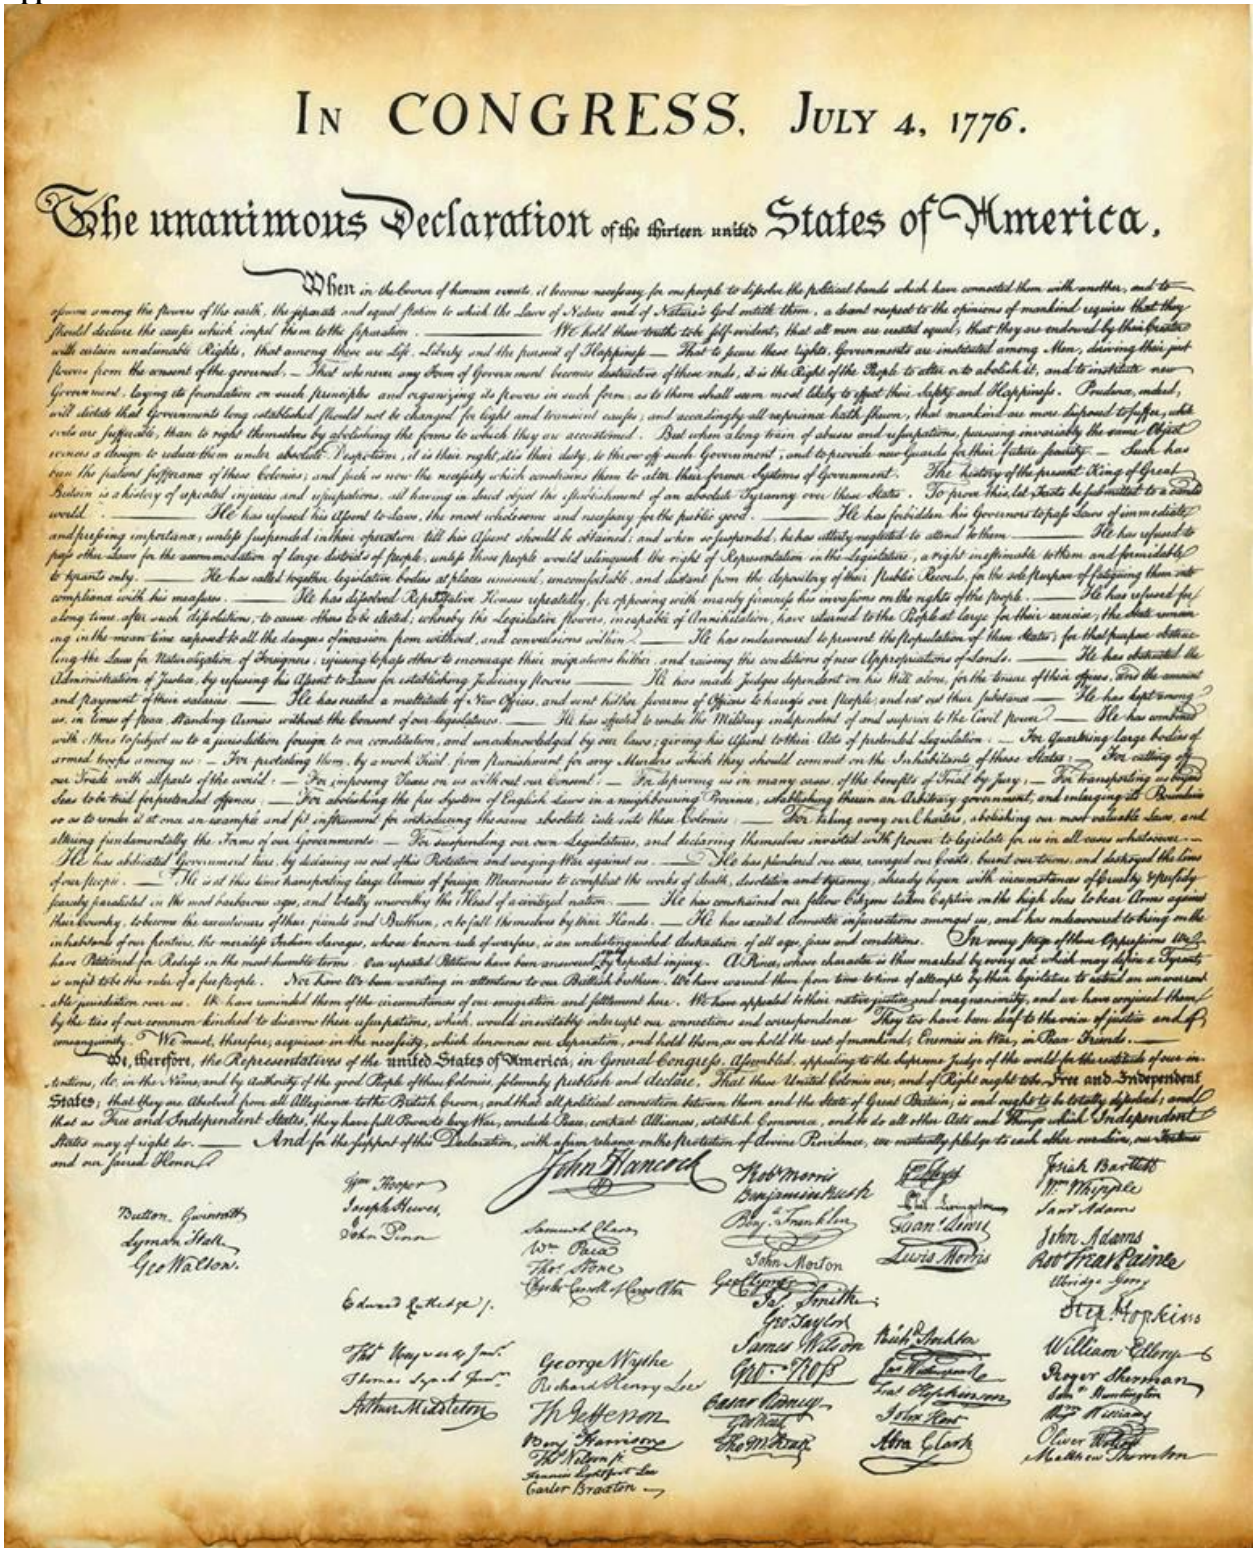 IN CONGRESS, JULY 4, 1776.
The unanimous Declaration of the thirteen united States of America,
When in the Course of human events, it becomes necessary for one people to dissolve the political bands which have connected them with another, and to
assume among the powers of the earth, the separate and equal station to which the Laws of Nature and of Nature's God entitle them, a decent respect to the opinions of mankind requires that they
should declare the causes which impel them to the separation. We hold these truths to be self-evident, that all men are created equal, that they are endowed by their Creator
with certain unalienable Rights, that among these are Life, Liberty and the pursuit of Happiness — That to secure these rights, Governments are instituted among Men, deriving their just
powers from the consent of the governed, — That whenever any Form of Government becomes destructive of these ends, it is the Right of the People to alter or to abolish it, and to institute new
Government, laying its foundation on such principles and organizing its powers in such form, as to them shall seem most likely to effect their Safety and Happiness. Prudence, indeed,
will dictate that Governments long established should not be changed for light and transient causes; and accordingly all experience hath shewn, that mankind are more disposed to suffer, while
evils are sufferable, than to right themselves by abolishing the forms to which they are accustomed. But when a long train of abuses and usurpations, pursuing invariably the same Object
evinces a design to reduce them under absolute Despotism, it is their right, it is their duty, to throw off such Government, and to provide new Guards for their future security. — Such has
been the patient sufferance of these Colonies; and such is now the necessity which constrains them to alter their former Systems of Government. The history of the present King of Great
Britain is a history of repeated injuries and usurpations, all having in direct object the establishment of an absolute Tyranny over these States. To prove this, let Facts be submitted to a candid
world. He has refused his Assent to Laws, the most wholesome and necessary for the public good. He has forbidden his Governors to pass Laws of immediate
and pressing importance, unless suspended in their operation till his Assent should be obtained; and when so suspended, he has utterly neglected to attend to them. He has refused to
pass other Laws for the accommodation of large districts of people, unless those people would relinquish the right of Representation in the Legislature, a right inestimable to them and formidable
to tyrants only. He has called together legislative bodies at places unusual, uncomfortable, and distant from the depository of their Public Records, for the sole purpose of fatiguing them into
compliance with his measures. He has dissolved Representative Houses repeatedly, for opposing with manly firmness his invasions on the rights of the people. He has refused for
a long time, after such dissolutions, to cause others to be elected; whereby the Legislative powers, incapable of Annihilation, have returned to the People at large for their exercise; the State remain
ing in the mean time exposed to all the dangers of invasion from without, and convulsions within. He has endeavoured to prevent the population of these States; for that purpose obstruc
ting the Laws for Naturalization of Foreigners; refusing to pass others to encourage their migrations hither, and raising the conditions of new Appropriations of Lands. He has obstructed the
Administration of Justice, by refusing his Assent to Laws for establishing Judiciary powers He has made Judges dependent on his Will alone, for the tenure of their offices, and the amount
and payment of their salaries. He has erected a multitude of New Offices, and sent hither swarms of Officers to harass our people, and eat out their substance. He has kept among
us, in times of peace, Standing Armies without the Consent of our legislatures. He has affected to render the Military independent of and superior to the Civil power. He has combined
with others to subject us to a jurisdiction foreign to our constitution, and unacknowledged by our laws; giving his Assent to their Acts of pretended Legislation: — For Quartering large bodies of
armed troops among us: — For protecting them, by a mock Trial, from punishment for any Murders which they should commit on the Inhabitants of these States: — For cutting off
our Trade with all parts of the world: — For imposing Taxes on us without our Consent: — For depriving us in many cases, of the benefits of Trial by Jury: — For transporting us beyond
Seas to be tried for pretended offences: — For abolishing the free System of English Laws in a neighbouring Province, establishing therein an Arbitrary government, and enlarging its Boundaries
so as to render it at once an example and fit instrument for introducing the same absolute rule into these Colonies: — For taking away our Charters, abolishing our most valuable Laws, and
altering fundamentally the Forms of our Governments: — For suspending our own Legislatures, and declaring themselves invested with power to legislate for us in all cases whatsoever. —
He has abdicated Government here, by declaring us out of his Protection and waging War against us. He has plundered our seas, ravaged our Coasts, burnt our towns, and destroyed the lives
of our people. He is at this time transporting large Armies of foreign Mercenaries to compleat the works of death, desolation and tyranny, already begun with circumstances of Cruelty & perfidy
scarcely paralleled in the most barbarous ages, and totally unworthy the Head of a civilized nation. He has constrained our fellow Citizens taken Captive on the high Seas to bear Arms against
their Country, to become the executioners of their friends and Brethren, or to fall themselves by their Hands. He has excited domestic insurrections amongst us, and has endeavoured to bring on the
inhabitants of our frontiers, the merciless Indian Savages, whose known rule of warfare, is an undistinguished destruction of all ages, sexes and conditions. In every stage of these Oppressions We
have Petitioned for Redress in the most humble terms: Our repeated Petitions have been answered only by repeated injury. A Prince, whose character is thus marked by every act which may define a Tyrant,
is unfit to be the ruler of a free people. Nor have We been wanting in attentions to our Brittish brethren. We have warned them from time to time of attempts by their legislature to extend an unwarrant
able jurisdiction over us. We have reminded them of the circumstances of our emigration and settlement here. We have appealed to their native justice and magnanimity, and we have conjured them
by the ties of our common kindred to disavow these usurpations, which, would inevitably interrupt our connections and correspondence They too have been deaf to the voice of justice and of
consanguinity. We must, therefore, acquiesce in the necessity, which denounces our Separation, and hold them, as we hold the rest of mankind, Enemies in War, in Peace Friends.
We, therefore, the Representatives of the united States of America, in General Congress, Assembled, appealing to the Supreme Judge of the world for the rectitude of our in
tentions, do, in the Name, and by Authority of the good People of these Colonies, solemnly publish and declare, That these United Colonies are, and of Right ought to be Free and Independent
States; that they are Absolved from all Allegiance to the British Crown, and that all political connection between them and the State of Great Britain, is and ought to be totally dissolved; and
that as Free and Independent States, they have full Power to levy War, conclude Peace, contract Alliances, establish Commerce, and to do all other Acts and Things which Independent
States may of right do. And for the support of this Declaration, with a firm reliance on the Protection of divine Providence, we mutually pledge to each other our Lives, our Fortunes
and our sacred Honor
Button Gwinnett
Lyman Hall
Geo Walton.
Wm Hooper
Joseph Hewes,
John Penn
Edward Rutledge
Thos Heyward Junr.
Thomas Lynch Junr.
Arthur Middleton
John Hancock
Samuel Chase
Wm. Paca
Thos. Stone
Charles Carroll of Carrollton
George Wythe
Richard Henry Lee
Th Jefferson
Benj Harrison
Thos Nelson jr.
Francis Lightfoot Lee
Carter Braxton
Robt Morris
Benjamin Rush
Benja. Franklin
John Morton
Geo Clymer
Jas. Smith
Geo. Taylor
James Wilson
Geo. Ross
Caesar Rodney
Geo Read
Tho M:Kean
Wm Floyd
Phil. Livingston
Frans. Lewis
Lewis Morris
Richd. Stockton
Jno Witherspoon
Fras. Hopkinson
John Hart
Abra Clark
Josiah Bartlett
Wm. Whipple
Saml Adams
John Adams
Robt Treat Paine
Elbridge Gerry
Step. Hopkins
William Ellery
Roger Sherman
Saml Huntington
Wm Williams
Oliver Wolcott
Matthew Thornton